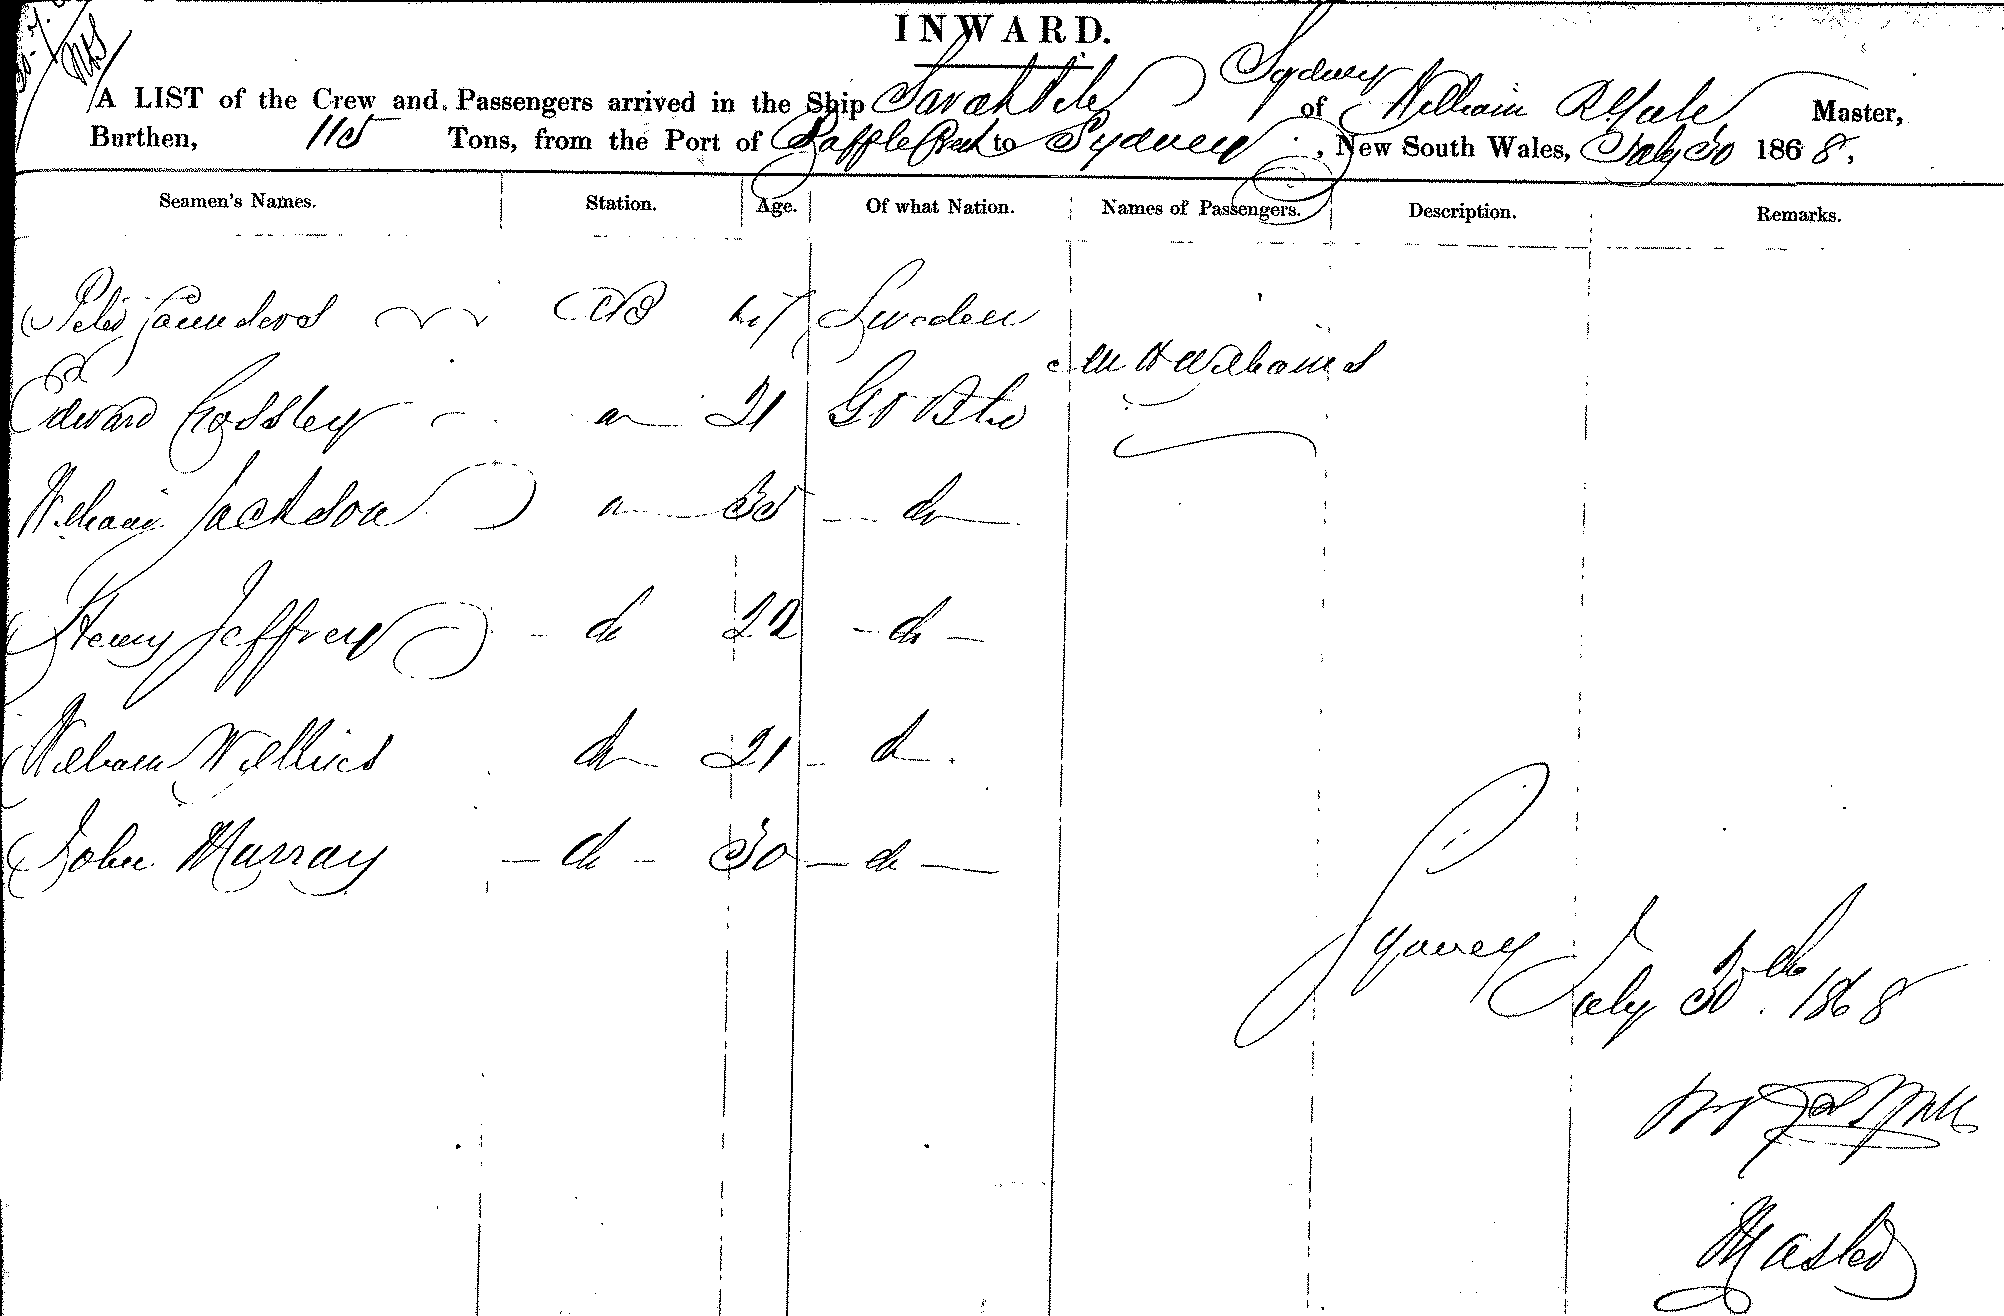 INWARD.
A LIST of the Crew and Passengers arrived in the Ship Sarah Pile of Sydney William Master,
Burthen, 115 Tons, from the Port of to Sydney, New South Wales, July 30 1868,
Seamen's Names. Station. Age. Of what Nation. Names of Passengers. Description. Remarks.
Peter Saunders AB 47 Sweden
Mr Williams
Edward Crossley 21 Gt
William Jackson 35 do
Henry Jeffrey do 22 do
William Willies do 21 do
John Murray do 30 do
Sydney July 30th 1868
Master